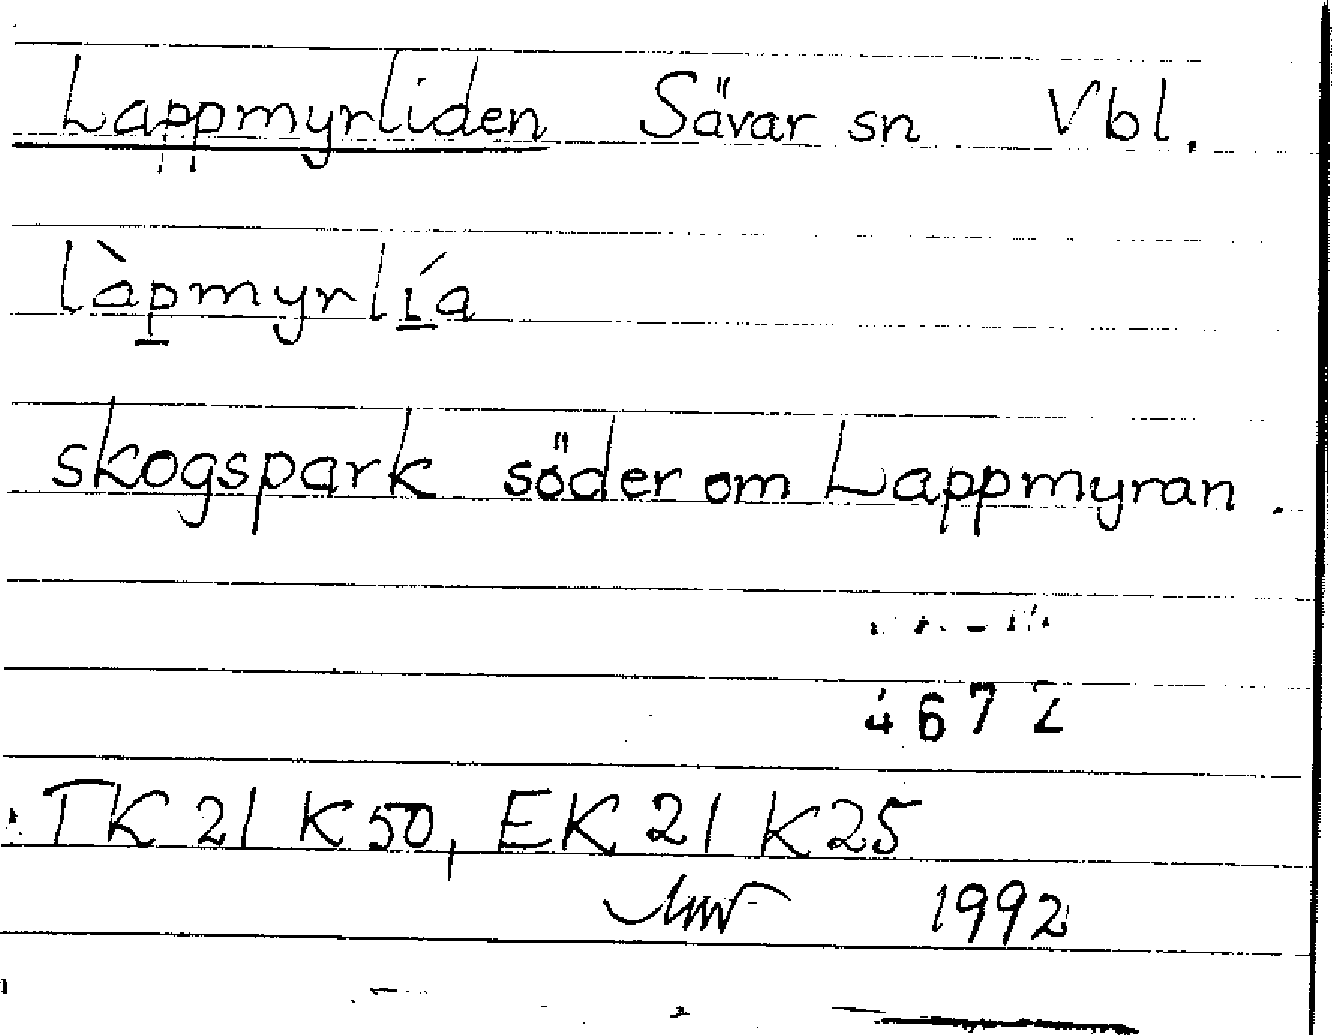 Lappmyrliden Sävar sn Vbl.
làpmyrlía
skogspark söder om Lappmyran.
4672
TK 21 K 50, EK 21 K 25
1992